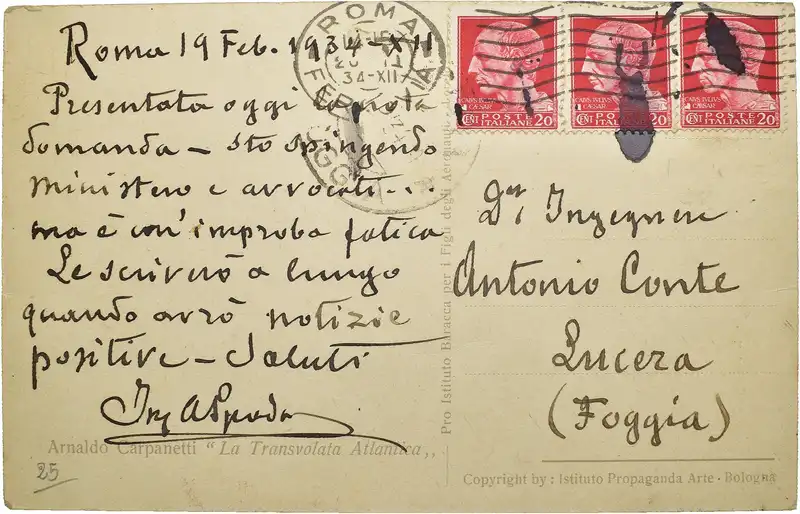 Roma 19 Feb. 1934-XII
Presentata oggi la nota
domanda - sto spingendo
ministero e avvocati...
ma è un' improba fatica
Le scriverò a lungo
quando avrò notizie
positive - Saluti
Ing ASpada
Arnaldo Carpanetti "La Transvolata Atlantica,,
25
ROMA
FERROVIA
34-XII
CAIVS IVLIVS
CAESAR
POSTE
CENT ITALIANE 20
CAIVS IVLIVS
CAESAR
POSTE
CENT ITALIANE 20
CAIVS IVLIVS
CAESAR
POSTE
CENT ITALIANE 20
Pro Istituto Baracca per i Figli degli Aeronauti
Ingegnere
Antonio Conte
Lucera
(Foggia)
Copyright by: Istituto Propaganda Arte - Bologna